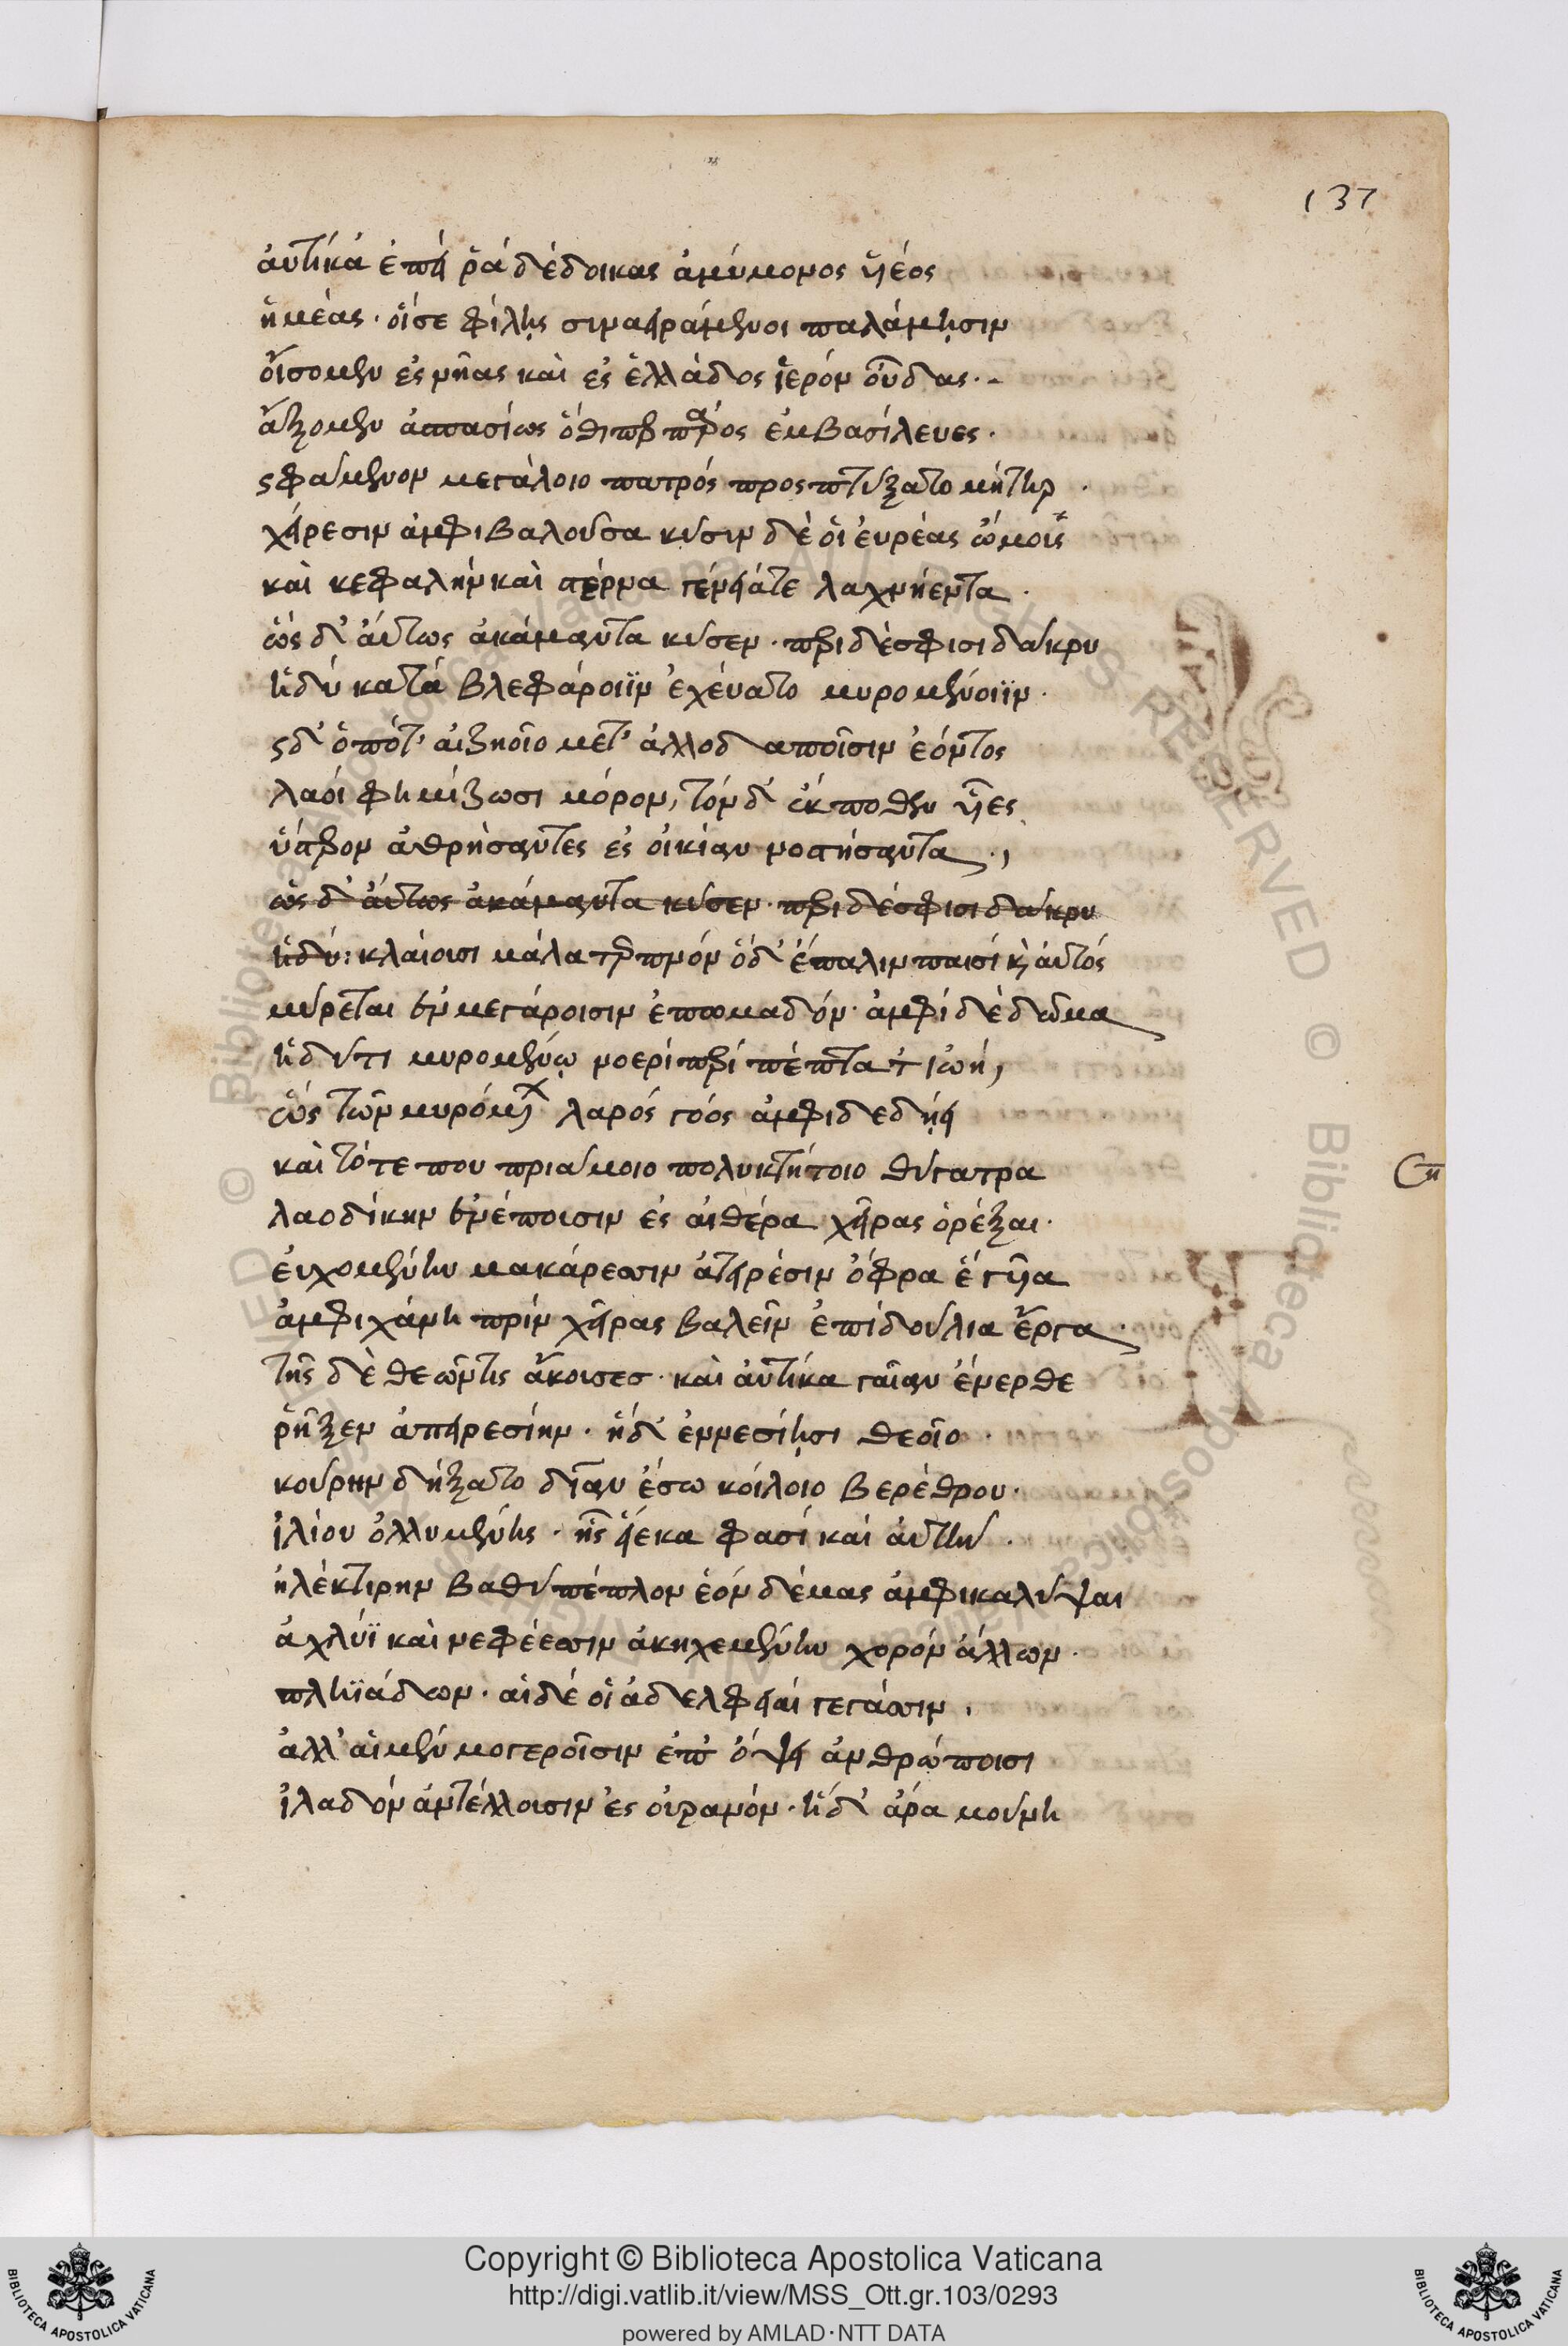 137
αὐτίκα ἐπεί ῥά δέδοικας ἀμύμονος υἱέος
ἡμέας· οἵ σε φίλης συναειράμενοι παλάμησιν
οἴσομεν ἐς νῆας καὶ ἐς ἑλλάδος ἱερόν οὖδας·
ἄξομεν ἀσπασίως ὅθι περ πάρος ἐμβασίλευες·
ς φαμενον μεγάλοιο πατρός προςπτύξατο μήτηρ·
χείρεσιν ἀμφιβαλοῦσα κύσεν δέ οἱ εὐρέας ὤμους
καὶ κεφαλήν καὶ στέρνα γένειά τε λαχνήεντα·
ὥς δ' αὔτως ἀκάμαντα κύσεν· περὶ δέ σφισι δάκρυ
ἡδύ κατά βλεφάροιϊν ἐχεύατο μυρομένοιϊν·
ς δ' ὁπότ' αἰζηοῖο μετ' ἀλλοδαποῖσιν ἐόντος
λαοί φημίξωσι μόρον, τόν δ' ἔκποθεν υἷες
ὕστερον ἀθρήσαντες ἐς οἰκίαν νοστήσαντα·,
ὥς δ' αὔτως ἀκάμαντα κύσεν· περὶ δέ σφισι δάκρυ
ἡδύ: κλαίουσι μάλα τερπνόν ὅδ' ἔμπαλιν παισί καὶ αὐτός
μύρεται ἐν μεγάροισιν ἐπωμαδόν· ἀμφί δὲ δῶμα
ἡδύ τι μυρομένῳ νοερί περί πέπταται ἰωή,
ὥς τῶν μυρομένων λαρός γόος ἀμφιδεδήει
καὶ τότε που πριάμοιο πολυκτήτοιο θύγατρα
λαοδίκην ἐνέπουσιν ἐς αἰθέρα χεῖρας ὀρέξαι·
εὐχομένην μακάρεσσιν ἀτειρέσιν ὄφρα ἑ γαῖα
ἀμφιχάνη πρίν χεῖρας βαλεῖν ἐπί δούλια ἔργα·
τῆς δὲ θεῶν τις ἄκουσεσ· καὶ αὐτίκα γαῖαν ἔνερθε
ῥῆξεν ἀπειρεσίην· ἡ δ' ἐννεσίησι θεοῖο·
κούρην δήξατο δῖαν ἔσω κοίλοιο βερέθρου·
ἰλίου ὀλλυμένης· ἧς εἵεκα φασί καὶ αὐτήν·
ἠλέκτρην βαθύπεπλον ἑόν δέμας ἀμφικαλύψαι
ἀχλύϊ καὶ νεφέεσσιν ἀκηχεμένην χορόν ἄλλων·
πληϊάδων· αἱ δέ οἱ ἀδελφειαί γεγάασιν·
ἀλλ' αἱ μέν μογεροῖσιν ἐπ' ὄψει ἀνθρώποισι
ἰλαδόν ἀντέλλουσιν ἐς οὐρανόν· ἡ δ' ἄρα μούνη
Copyright © Biblioteca Apostolica Vaticana
http://digi.vatlib.it/view/MSS_Ott.gr.103/0293
powered by AMLAD·NTT DATA